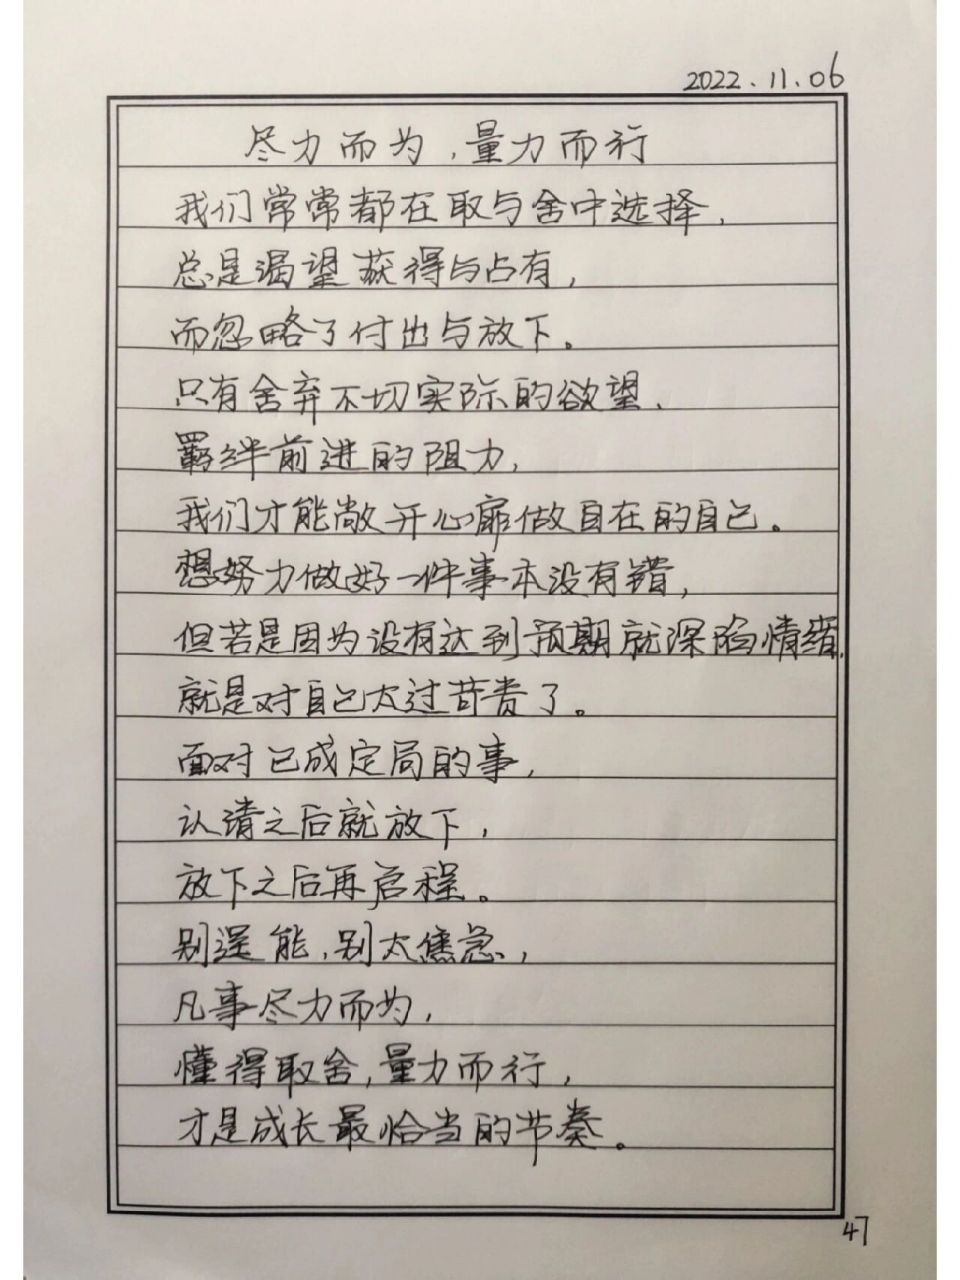 2022.11.06
尽力而为,量力而行
我们常常都在取与舍中选择,
总是渴望获得与占有,
而忽略了付出与放下。
只有舍弃不切实际的欲望、
羁绊前进的阻力,
我们才能敞开心扉做自在的自己。
想努力做好一件事本没有错,
但若是因为没有达到预期就深陷情绪,
就是对自己太过苛责了。
面对已成定局的事,
认清之后就放下,
放下之后再启程。
别逞能,别太焦急,
凡事尽力而为,
懂得取舍,量力而行,
才是成长最恰当的节奏。
47